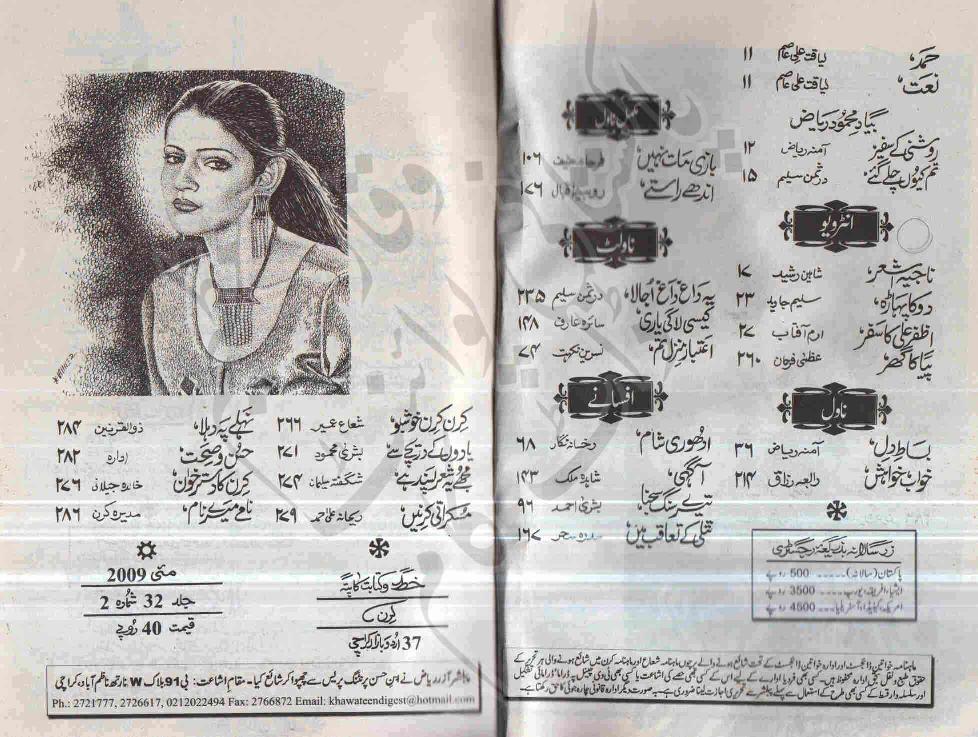 حمد، لیاقت علی عاصم ۱۱
نعت، لیاقت علی عاصم ۱۱
بیاد محمود ریاض
روشنی کے سفیر آمنہ ریاض ۱۲
تم کیوں چلے گئے، درثمن سلیم ۱۵
انٹرویو
شاہین رشید ۱۷
دو کا پہاڑہ، سلیم جاوید ۲۳
اظفر علی کا سفر ارم آفتاب ۲۷
پیا کا گھر عظمیٰ فرحان ۲۶۰
ناول
بساطِ دل، آمنہ ریاض ۳۶
خواب خواہش، ۲۱۴
زر سالانہ بذریعہ رجسٹری
پاکستان (سالانہ) ----- 500 روپے
ایشیا، افریقہ، یورپ ---- 3500 روپے
امریکہ، کینیڈا، آسٹریلیا --- 4500 روپے
مکمل ناول
بازی مات نہیں، ۱۰۶
اندھے راستے، ۱۷۶
ناولٹ
یہ داغ داغ اُجالا، درثمن سلیم ۲۳۵
کیسی لاگی یاری، سائرہ عارف ۱۴۸
اعتبارِ منزل تم، ۷۴
افسانے
ادھوری شام، رخسانہ نگار ۶۸
آگہی، شاہدہ ملک ۱۴۳
تیرے سنگ سجنا، بشریٰ احمد ۹۶
تتلی کے تعاقب میں، سدرہ سحر ۱۶۷
کرن کرن خوشبو، شعاع عمیر ۲۶۶
یادوں کے دریچے سے بشریٰ محمود ۲۷۱
مجھے یہ شعر پسند ہے، شگفتہ سلیمان ۲۷۴
مسکراتی کرنیں، ریحانہ علی احمد ۲۷۹
نہلے پہ دہلا، ذوالقرنین ۲۸۴
حسن و صحت، ادارہ ۲۸۲
کرن کا دسترخوان، خالدہ جیلانی ۲۷۶
نامے میرے نام، مدیرہ کرن ۲۸۶
خط و کتابت کا پتہ
کرن
37 اردو بازار کراچی
مئی 2009
جلد 32 شمارہ 2
قیمت 40 روپے
پبلشر آذر ریاض نے ابن حسن پرنٹنگ پریس سے چھپوا کر شائع کیا۔ مقام اشاعت: بی 91 بلاک W نارتھ ناظم آباد، کراچی
Ph.: 2721777, 2726617, 0212022494 Fax: 2766872 Email: khawateendigest@hotmail.com
ماہنامہ خواتین ڈائجسٹ اور ادارہ خواتین ڈائجسٹ کے تحت شائع ہونے والے پرچوں ماہنامہ شعاع اور ماہنامہ کرن میں شائع ہونے والی ہر تحریر کے
حقوق طبع و نقل بحق ادارہ محفوظ ہیں۔ کسی بھی فرد یا ادارے کے لیے اس کے کسی بھی حصے کی اشاعت یا کسی بھی ٹی وی چینل پہ ڈراما ڈرامائی تشکیل
اور سلسلہ وار قسط کے کسی بھی طرح کے استعمال سے پہلے پبلشر سے تحریری اجازت لینا ضروری ہے۔ بصورت دیگر ادارہ قانونی چارہ جوئی کا حق رکھتا ہے۔